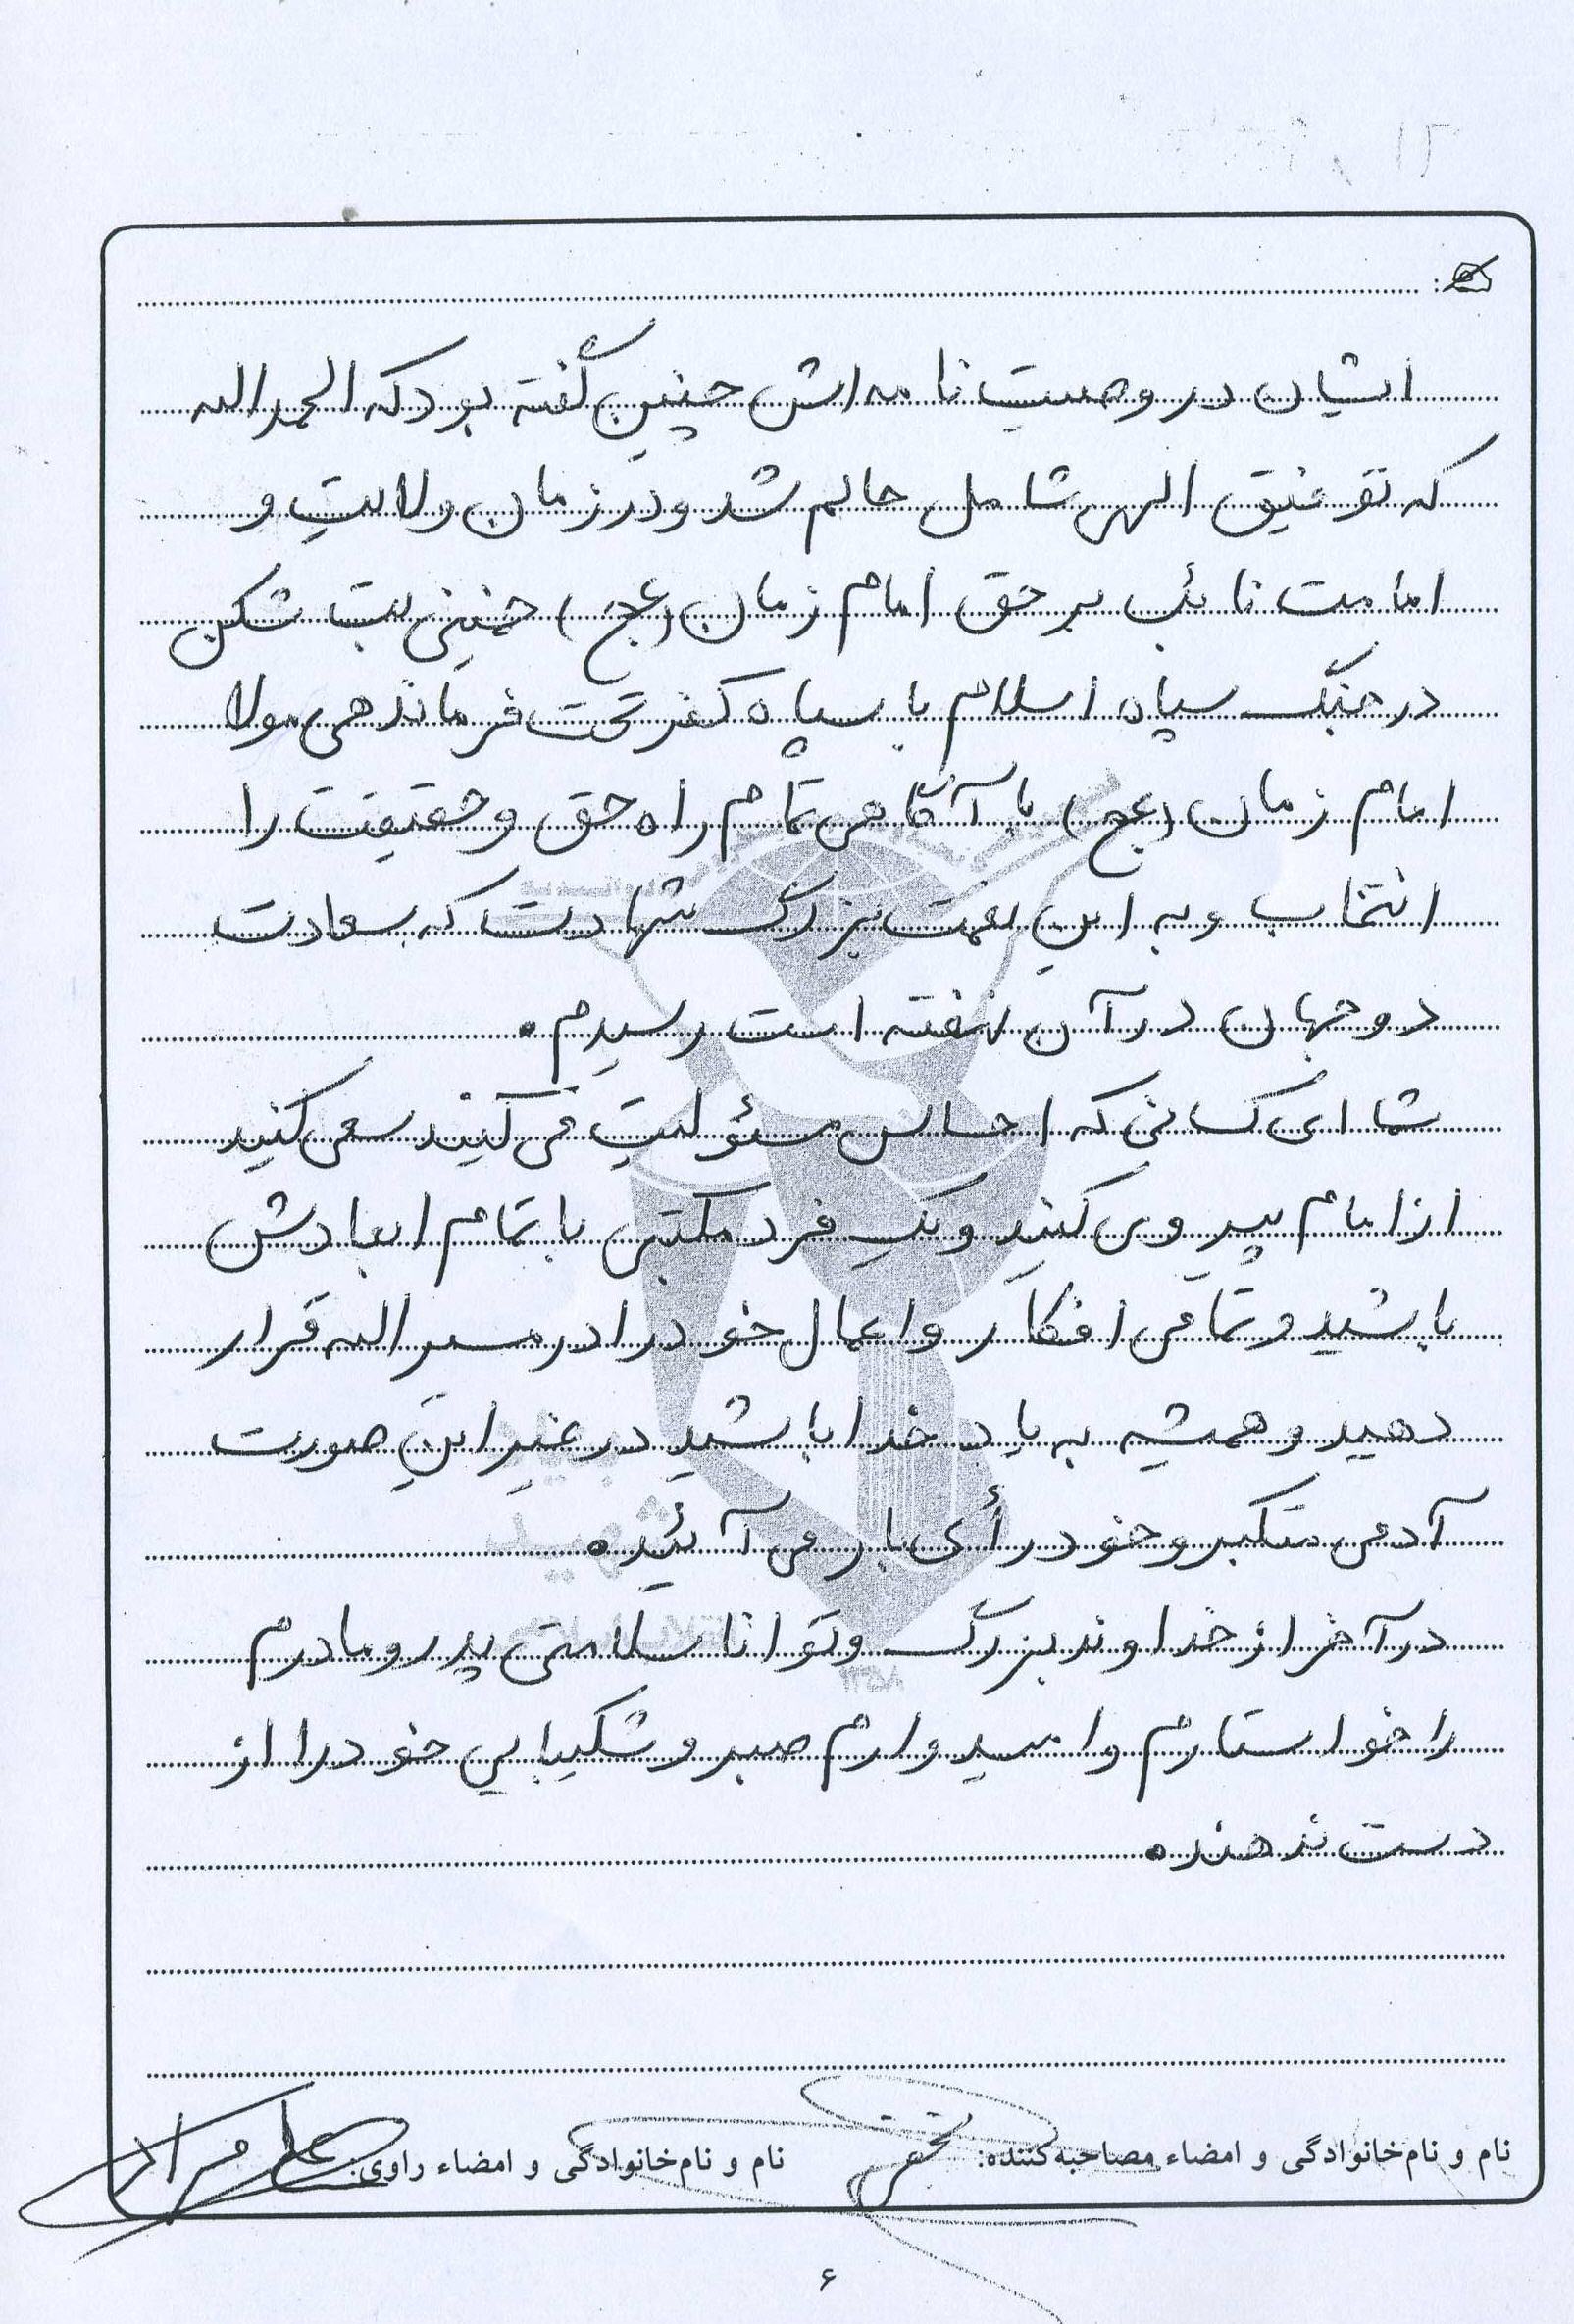 ایشان در وصیت نامه اش چنین گفته بود که الحمدالله
که توفیق الهی شامل حالم شد و در زمان ولایت و
امامت نائب بر حق امام زمان (عج) خمینی بت شکن
در جنگ سپاه اسلام با سپاه کفر تحت فرماندهی مولا
امام زمان (عج) با آگاهی تمام راه حق و حقیقت را
انتخاب و به این نعمت بزرگ شهادت که سعادت
دو جهان در آن نهفته است رسیدم.
شما ای کسانی که احساس مسئولیت می کنید سعی کنید
از امام پیروی کنید و یک فرد مکتبی با تمام ابعادش
باشید و تمامی افکار و اعمال خود را در مسیر الله قرار
دهید و همیشه به یاد خدا باشید در غیر این صورت
آدمی متکبر و خود رأی بار می آئید.
در آخر از خداوند بزرگ و توانا سلامتی پدر و مادرم
را خواستارم و امیدوارم صبر و شکیبایی خود را از
دست ندهند.
نام و نام‌خانوادگی و امضاء مصاحبه‌کننده: نام و نام‌خانوادگی و امضاء راوی:
۶